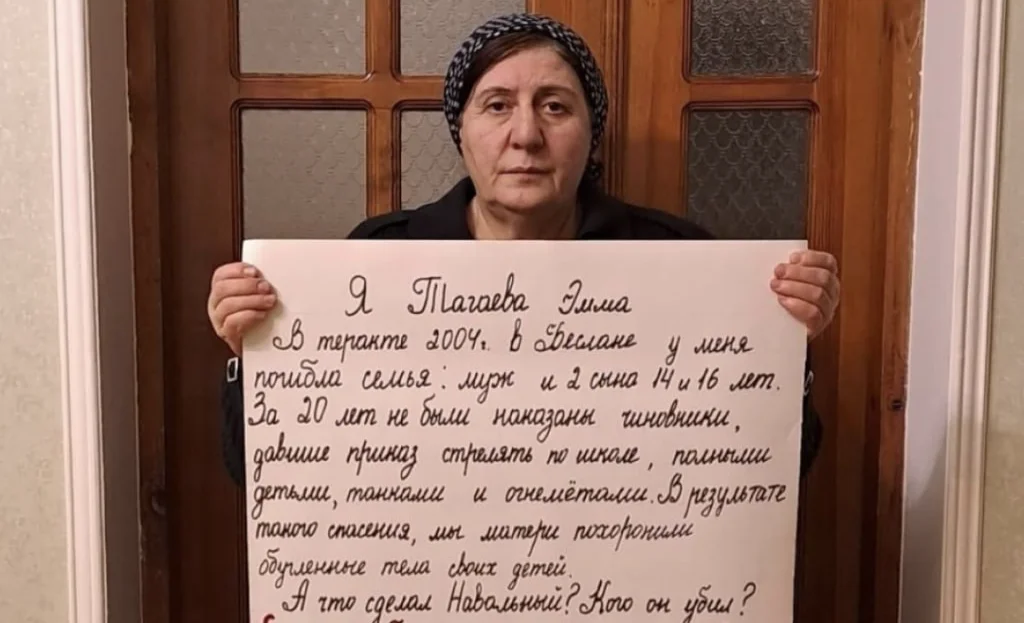 Я Тагаева Эмма
В теракте 2004г. в Беслане у меня
погибла семья: муж и 2 сына 14 и 16 лет.
За 20 лет не были наказаны чиновники,
давшие приказ стрелять по школе, полными
детьми, танками и огнемётами. В результате
такого спасения, мы матери похоронили
обугленные тела своих детей.
А что сделал Навальный? Кого он убил?